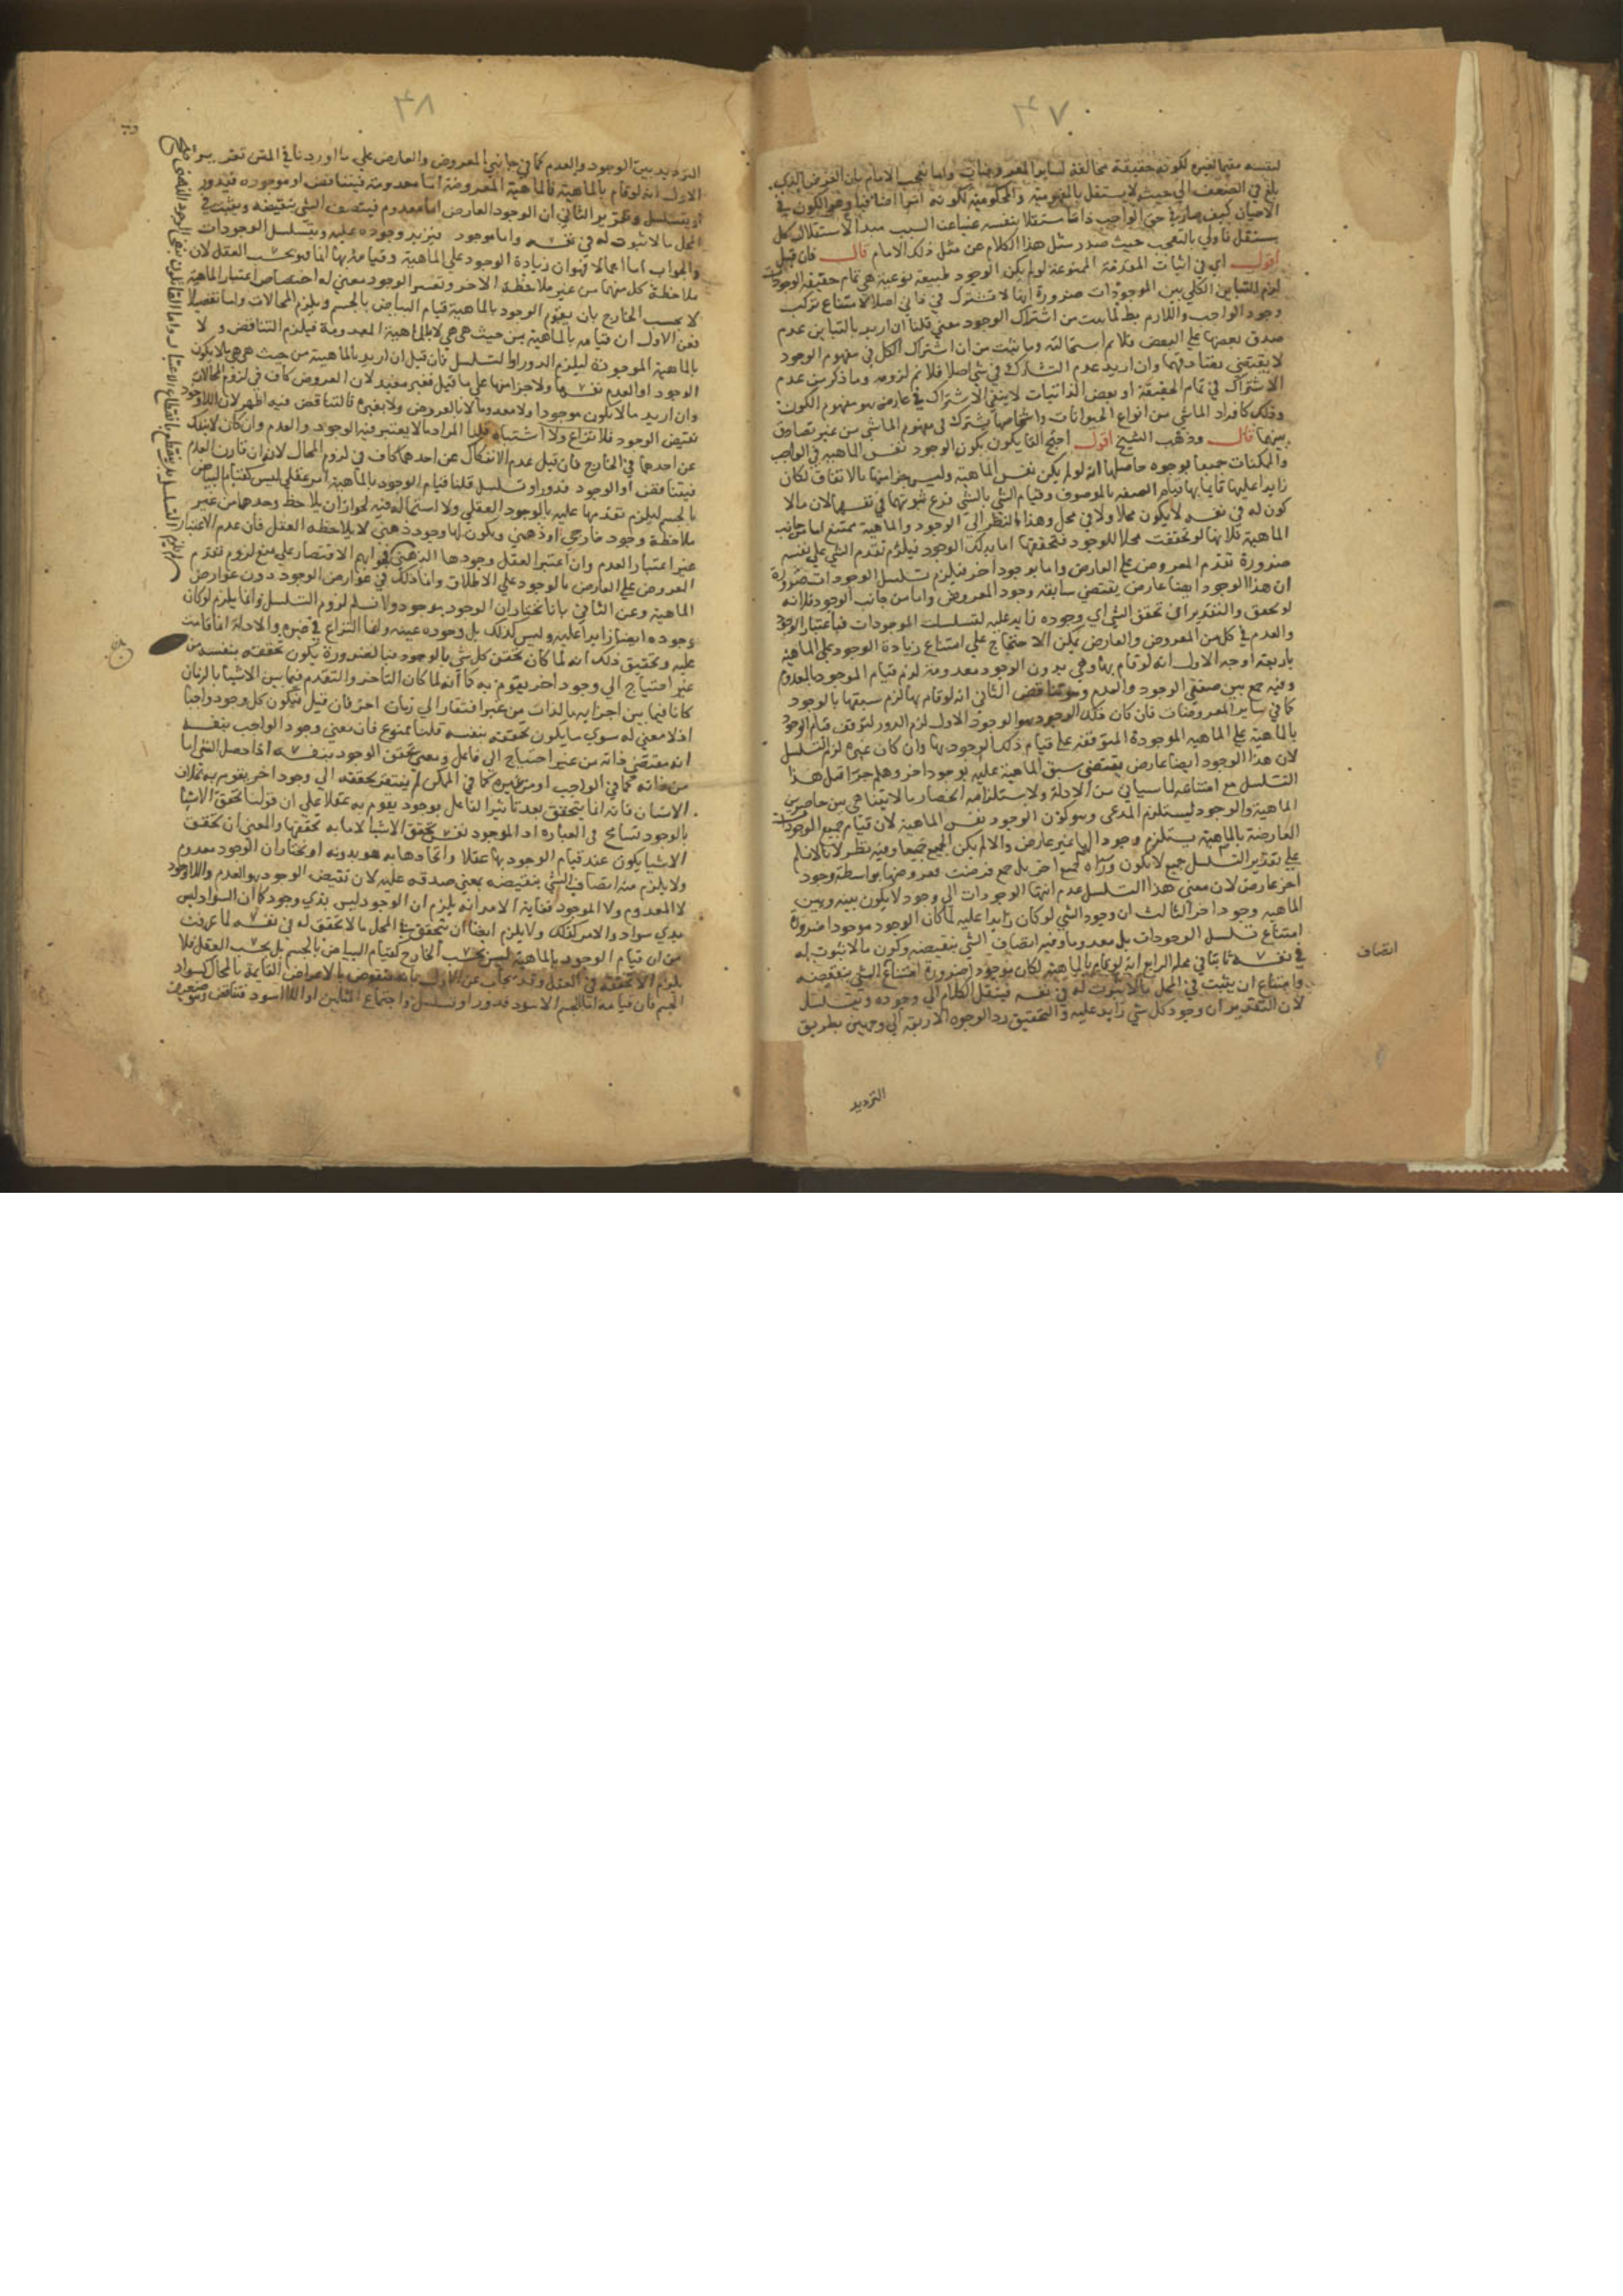 ٣٧
لنفسه مقيما لغيره لكونه حقيقة مخالفة لسائر المعروضات واما تعجب الامام بان العرض الذي
بلغ في الضعف الى حيث لا يستقل بالمفهومية والمحكومية لكونه امرا اضافيا وهو الكون في
الاعيان كيف صار في حق الواجب ذاتا مستقلا بنفسه غنيا عن السبب مبدأ لاستقلال كل
مستقل فاولى بالتعجب حيث صدر مثل هذا الكلام عن مثل ذلك الامام قال فان قيل
اقول اي في اثبات المقدمة الممنوعة لو لم يكن الوجود طبيعة نوعية هي تمام حقيقة الوجودات
لزم التباين الكلي بين الموجودات ضرورة انها لا تشترك في ذاتي اصلا لامتناع تركب
وجود الواجب واللازم بط لما ثبت من اشتراك الوجود معنى قلنا ان اريد بالتباين عدم
صدق بعضها على البعض فلا نم استحالته وما ثبت من ان اشتراك الكل في مفهوم الوجود
لا يقتضي تصادقها وان اريد عدم التشارك في شي اصلا فلا نم لزومه وما ذكر من عدم
الاشتراك في تمام الحقيقة او بعض الذاتيات لا ينفي الاشتراك في عارض هو مفهوم الكون
وذلك كافراد الماشي من انواع الحيوانات واشخاصها يشترك في مفهوم الماشي من غير تصادق
بينها قال وذهب الشيخ اقول احتج القايلون بكون الوجود نفس الماهية في الواجب
والممكنات جميعا بوجوه حاصلها انه لو لم يكن نفس الماهية وليس جزا منها بالاتفاق لكان
زايدا عليها قايما بها قيام الصفة بالموصوف وقيام الشي بالشي فرع ثبوتهما في نفسهما لان ما لا
كون له في نفسه لا يكون محلا ولا في محل وهذا بالنظر الى الوجود والماهية ممتنع اما من جانب
الماهية فلانها لو تحققت محلا للوجود فتحققها اما بذلك الوجود فيلزم تقدم الشي على نفسه
ضرورة تقدم المعروض على العارض واما بوجود اخر فيلزم تسلسل الوجودات ضرورة
ان هذا الوجود ايضا عارض يقتضي سابقة وجود المعروض واما من جانب الوجود فلانه
لو تحقق والتقدير ان تحقق الشي اي وجوده زايد عليه لتسلسلت الموجودات فباعتبار الوجود
والعدم في كل من المعروض والعارض يمكن الاحتجاج على امتناع زيادة الوجود على الماهية
باربعة اوجه الاول انه لو قام بها وهي بدون الوجود معدومة لزم قيام الموجود بالمعدوم
وفيه جمع بين صفتي الوجود والعدم وهو تناقض الثاني انه لو قام بها لزم سبقها بالوجود
كما في ساير المعروضات فان كان ذلك الوجود هو الوجود الاول لزم الدور لتوقف قيام الوجود
بالماهية على الماهية الموجودة المتوقفة على قيام ذلك الوجود بها وان كان غيره لزم التسلسل
لان هذا الوجود ايضا عارض يقتضي سبق الماهية عليه بوجود اخر وهلم جرا قيل هذا
التسلسل مع امتناعه لما سياتي من الادلة ولاستلزامه انحصار ما لا يتناهي بين حاصرين
الماهية والوجود ليستلزم المدعى وهو كون الوجود نفس الماهية لان قيام جميع الوجودات
العارضة بالماهية يستلزم وجودا لها غير عارض والا لم يكن الجميع جميعا وفيه نظر لانا لا نسلم
على تقدير التسلسل جميع لا يكون وراه جميع اخر بل جمع فرضت فعروضها بواسطة وجود
اخر عارض لان معنى هذا التسلسل عدم انتهاء الوجودات الى وجود لا يكون بينه وبين
الماهية وجود اخر الثالث ان وجود الشي لو كان زايدا عليه لما كان الوجود موجودا ضرورة
امتناع تسلسل الوجودات بل معدوما وفيه اتصاف الشي بنقيضه وكون ما لا ثبوت له
في نفسه ثابتا في محله الرابع انه لو قام بالماهية لكان موجودا ضرورة امتناع الشي بنقيضه
وامتناع ان يثبت في المحل ما لا ثبوت له في نفسه فينقل الكلام الى وجوده ويتسلسل
لان التقدير ان وجود كل شي زايد عليه والتحقيق رد الوجوه الاربعة الى وجهين بطريق
اتصاف
الترديد
٣٨
الترديد بين الوجود والعدم كما في جانبي المعروض والعارض على ما اوردنا في المتن تقرير
الاول انه لو قام بالماهية فالماهية المعروضة اما معدومة فيتناقض او موجودة فيدور
او يتسلسل وتقرير الثاني ان الوجود العارض اما معدوم فيتصف الشي بنقيضه ويثبت في
المحل ما لا ثبوت له في نفسه واما موجود فيزيد وجوده عليه ويتسلسل الوجودات
والجواب اما اجمالا فهو ان زيادة الوجود على الماهية وقيامه بها انما هو بحسب العقل لان
ملاحظة كل منهما من غير ملاحظة الاخر وتفسير الوجود معنى له اختصاص اعتبار الماهية
لا بحسب الخارج بان يقوم الوجود بالماهية قيام البياض بالجسم ويلزم المحالات واما تفصيلا
فعن الاول ان قيامه بالماهية من حيث هي هي لا بالماهية المعدومة فيلزم التناقض ولا
بالماهية الموجودة ليلزم الدور او التسلسل فان قيل ان اريد بالماهية من حيث هي هي ما لا يكون
الوجود او العدم نفسها ولا جزا منها على ما قيل فغير مفيد لان العروض كاف في لزوم المحالات
وان اريد ما لا يكون موجودا ولا معدوما لا بالعروض ولا بغيره فالتناقض فيه اظهر لان اللاوجود
نقيض الوجود فلا نزاع ولا اشتباه قلنا المراد ما لا يعتبر فيه الوجود والعدم وان كان لا ينفك
عن احدهما في الخارج فان قيل عدم الانفكاك عن احدهما كاف في لزوم المحال لانه ان قارن العدم
فيتناقض او الوجود فدور او تسلسل قلنا قيام الوجود بالماهية امر عقلي ليس كقيام البياض
بالجسم ليلزم تقدمها عليه بالوجود العقلي ولا استحالة فيه لجواز ان يلاحظ وحدها من غير
ملاحظة وجود خارجي او ذهني ويكون لها وجود ذهني لا يلاحظه العقل فان عدم الاعتبار
غير اعتبار العدم وان اعتبر العقل وجودها الذهني فجوابهم الاقتصار على منع لزوم تقدم
المعروض على العارض بالوجود على الاطلاق وانما ذلك في عوارض الوجود دون عوارض
الماهية وعن الثاني بانا نختار ان الوجود بوجود ولا نسلم لزوم التسلسل وانما يلزم لو كان
وجوده ايضا زايدا عليه وليس كذلك بل وجوده عينه وانما النزاع في غيره والادلة انما قامت
عليه وتحقيق ذلك انه لما كان تحقق كل شي بالوجود فبالضرورة يكون تحققه بنفسه من
غير احتياج الى وجود اخر يقوم به كما انه لما كان التاخر والتقدم فيما بين الاشيا بالزمان
كانا فيما بين اجزايه بالذات من غير افتقار الى زمان اخر فان قيل فيكون كل وجود واجبا
اذ لا معنى له سوى ما يكون تحققه بنفسه قلنا ممنوع فان معنى وجود الواجب بنفسه
انه مقتضى ذاته من غير احتياج الى فاعل ومعنى تحقق الوجود بنفسه انه اذا حصل الشي اما
من ذاته كما في الواجب او من غيره كما في الممكن لم يفتقر تحققه الى وجود اخر يقوم به بخلاف
الانسان فانه انما يتحقق بعد تاثير الفاعل بوجود يقوم به عقلا على ان قولنا تحقق الاشيا
بالوجود تسامح في العبارة اذ الموجود نفس تحقق الاشيا لا ما به تحققها والمعنى ان تحقق
الاشيا يكون عند قيام الوجود بها عقلا واتحادها به هوية او نختار ان الوجود معدوم
ولا يلزم منه اتصاف الشي بنقيضه بمعنى صدقه عليه لان نقيض الوجود هو العدم واللاوجود
لا المعدوم ولا الموجود فغاية الامر انه يلزم ان الوجود ليس بذي وجود كما ان السواد ليس
بذي سواد والامر كذلك ولا يلزم ايضا ان يتحقق في المحل ما لا تحقق له في نفسه لما عرفت
من ان قيام الوجود بالماهية ليس بحسب الخارج كقيام البياض بالجسم بل بحسب العقل فلا
يلزم الا تحققه في العقل وقد يجاب عن الاول بانه منقوض بالاعراض القايمة بالمحال كسواد
الجسم فان قيامه اما بالجسم الاسود فدور او تسلسل واجتماع المثلين او اللااسود فتناقض